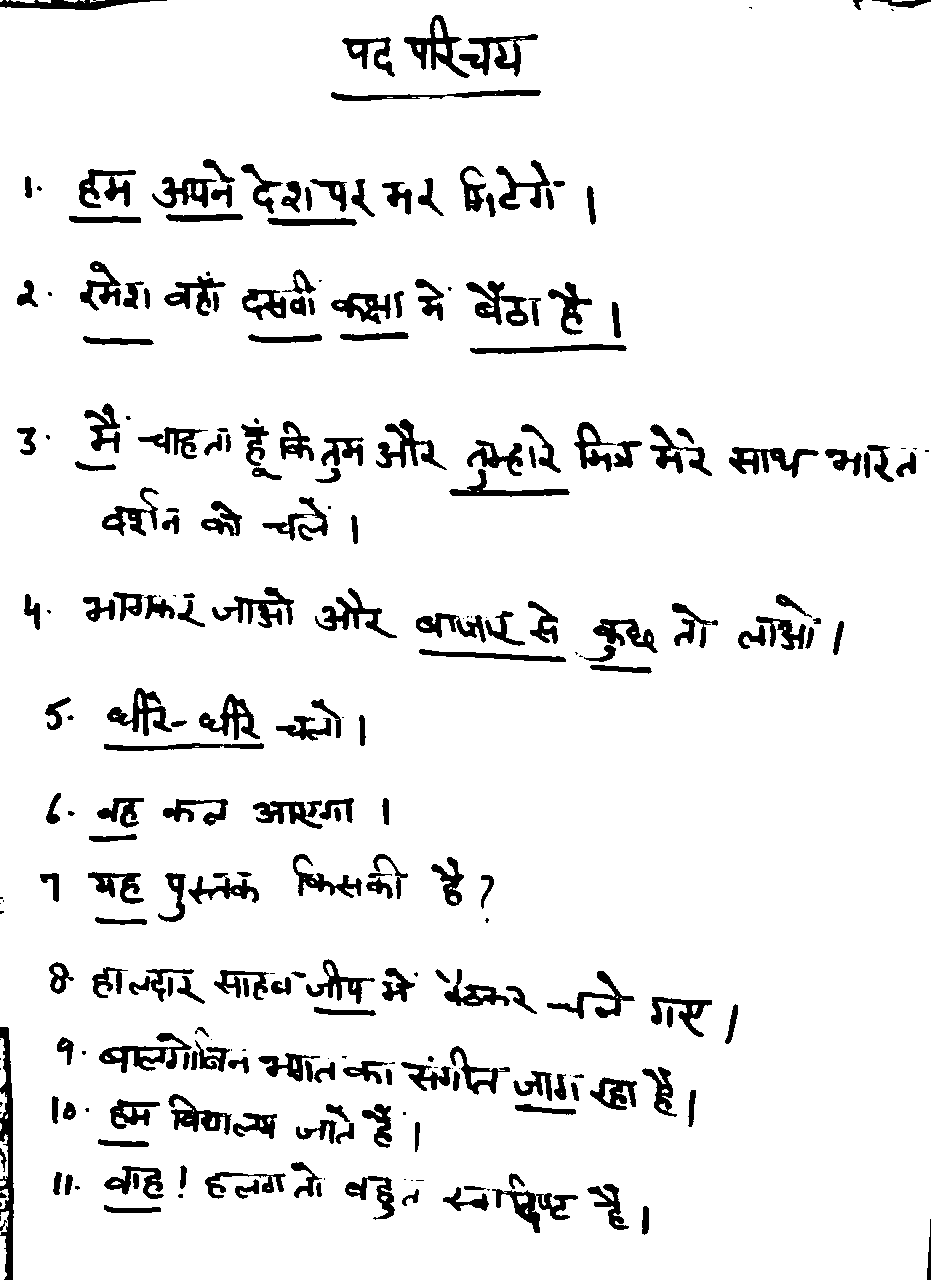 पद परिचय
1. हम अपने देश पर मर मिटेगे ।
२. रमेश वहाँ दसवीं कक्षा में बैठा है ।
3. मैं चाहता हूँ कि तुम और तुम्हारे मित्र मेरे साथ भारत
दर्शन को चलें ।
4. भागकर जाओ और बाजार से कुछ तो लाओ ।
5. धीरे-धीरे चलो ।
6. वह कल आएगा ।
7 यह पुस्तक किसकी है ?
8. हालदार साहब जीप में बैठकर चले गए ।
9. बालगोबिन भगत का संगीत जाग रहा है ।
10. हम विद्यालय जाते हैं ।
11. वाह ! हलवा तो बहुत स्वादिष्ट है ।